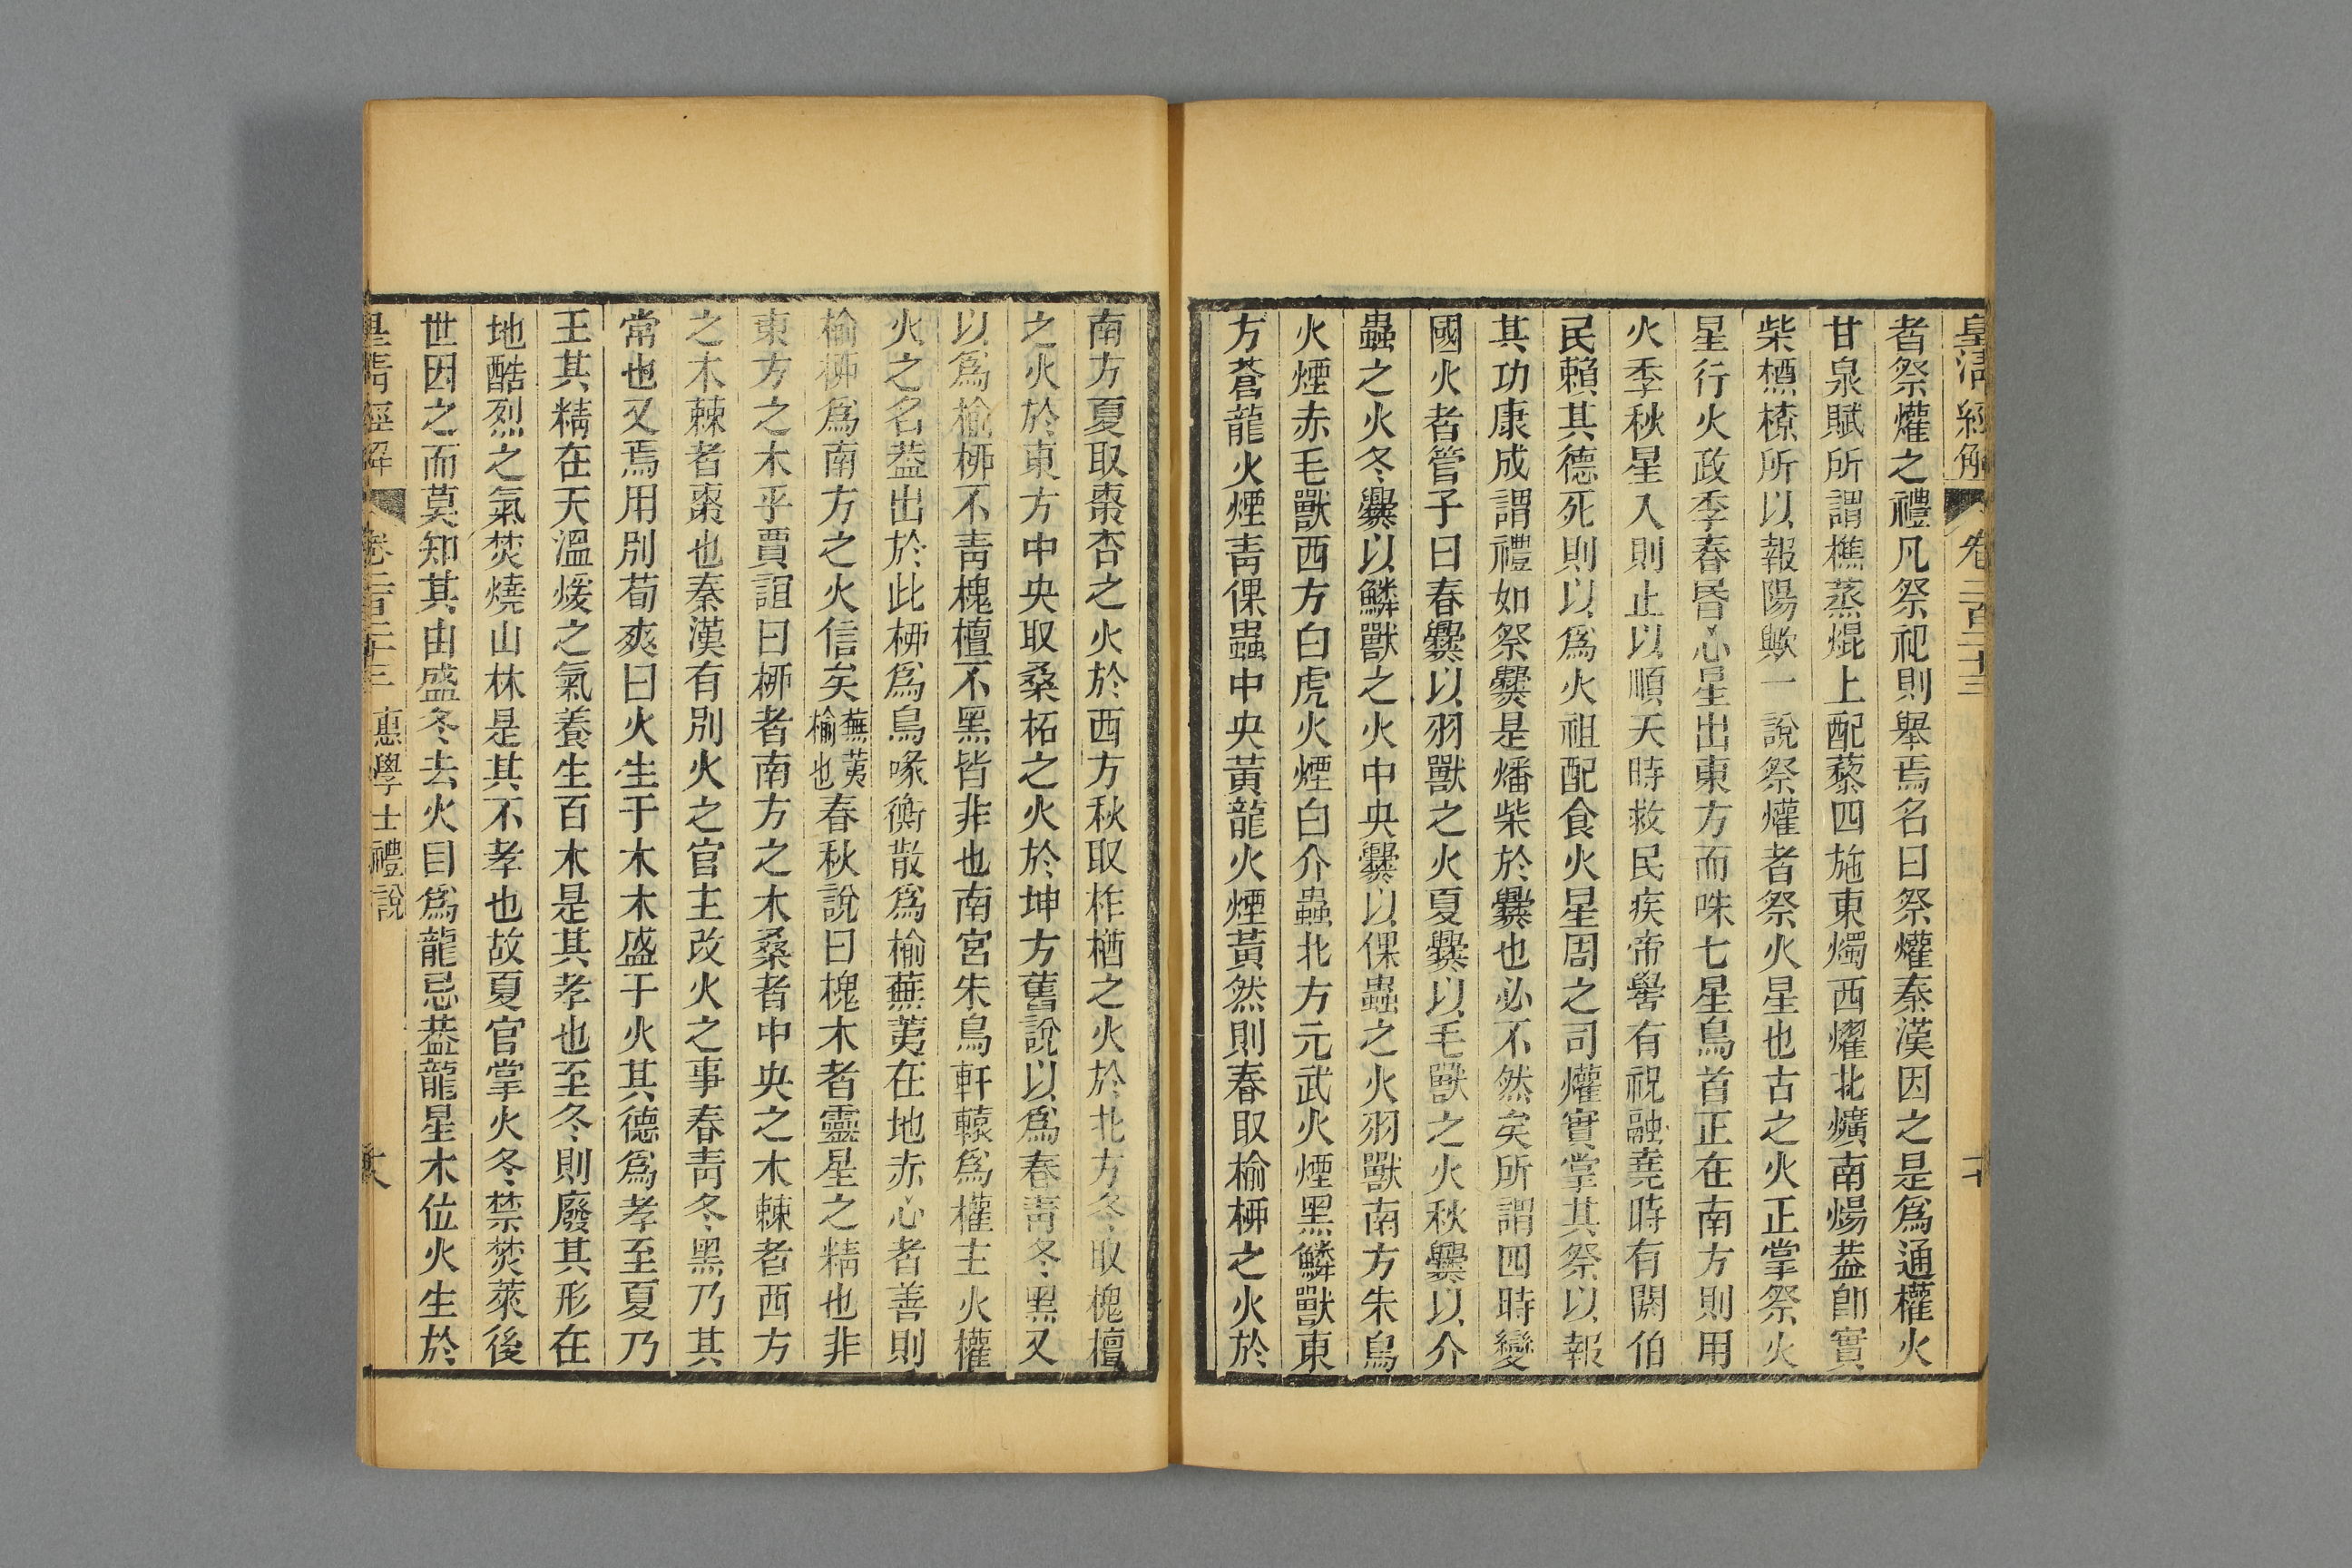 皇清經解 卷二百二十三
者祭爟之禮凡祭祀則舉焉名曰祭爟秦漢因之是爲通權火
甘泉賦所謂樵蒸焜上配藜四施東燭西燿北爌南煬葢卽實
柴槱燎所以報陽歟一說祭爟者祭火星也古之火正掌祭火
星行火政季春昏心星出東方而咮七星鳥首正在南方則用
火季秋星入則止以順天時救民疾帝嚳有祝融堯時有閼伯
民賴其德死則以爲火祖配食火星周之司爟實掌其祭以報
其功康成謂禮如祭爨是燔柴於爨也必不然矣所謂四時變
國火者管子曰春爨以羽獸之火夏爨以毛獸之火秋爨以介
蟲之火冬爨以鱗獸之火中央爨以倮蟲之火羽獸南方朱鳥
火煙赤毛獸西方白虎火煙白介蟲北方元武火煙黑鱗獸東
方蒼龍火煙靑倮蟲中央黃龍火煙黃然則春取榆栁之火於
南方夏取棗杏之火於西方秋取柞楢之火於北方冬取槐檀
之火於東方中央取桑柘之火於坤方舊說以爲春靑冬黑又
以爲榆栁不靑槐檀不黑皆非也南宮朱鳥軒轅爲權主火權
火之名葢出於此栁爲鳥喙衡散爲榆蕪荑在地赤心者善則
榆栁爲南方之火信矣蕪荑榆也春秋說曰槐木者靈星之精也非
東方之木乎賈誼曰栁者南方之木桑者中央之木棘者西方
之木棘者棗也秦漢有別火之官主改火之事春靑冬黑乃其
常也又焉用別荀爽曰火生于木木盛于火其德爲孝至夏乃
王其精在天溫煖之氣養生百木是其孝也至冬則廢其形在
地酷烈之氣焚燒山林是其不孝也故夏官掌火冬禁焚萊後
世因之而莫知其由盛冬去火目爲龍忌葢龍星木位火生於
皇清經解 卷二百二十三 惠學士禮說